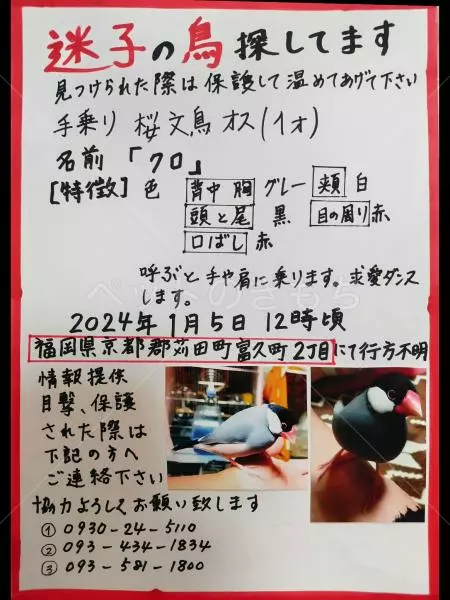 迷子の鳥探してます
見つけられた際は保護して温めてあげて下さい
手乗り 桜文鳥 オス(1才)
名前 「クロ」
[特徴] 色 背中 胸 グレー 頬 白
頭と尾 黒 目の周り赤
口ばし 赤
呼ぶと手や肩に乗ります。求愛ダンス
します。
ペットのきもち
2024年1月5日 12時頃
福岡県京都郡苅田町富久町2丁目にて行方不明
情報提供
目撃、保護
された際は
下記の方へ
ご連絡下さい
協力よろしくお願い致します
① 0930-24-5110
② 093-434-1834
③ 093-581-1800